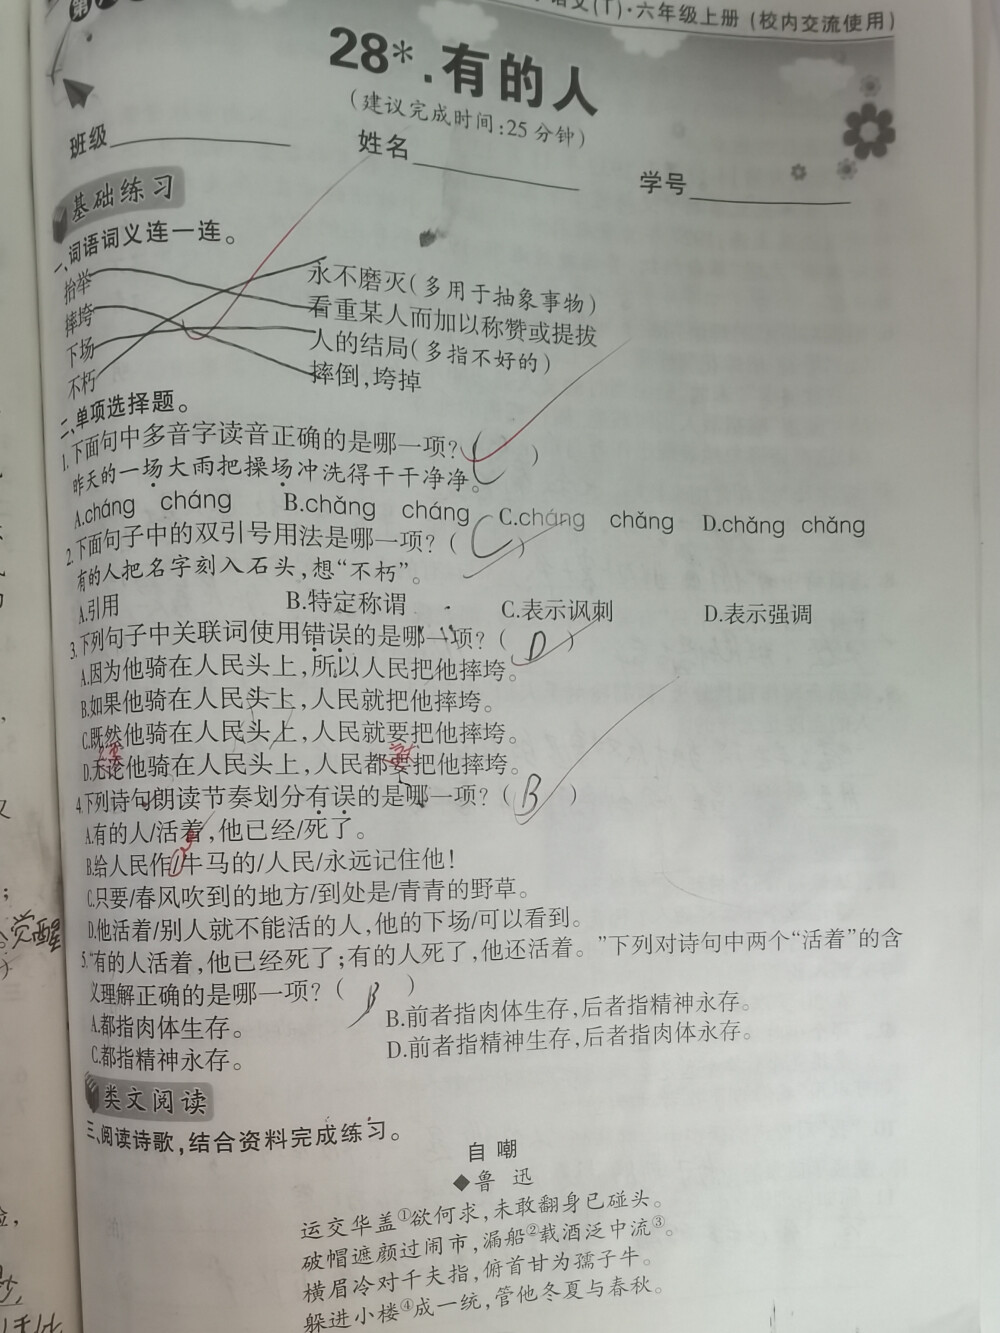 语文(T)·六年级上册(校内交流使用)
28*.有的人
(建议完成时间:25分钟)
班级 姓名 学号
基础练习
一、词语词义连一连。
抬举 永不磨灭(多用于抽象事物)
摔垮 看重某人而加以称赞或提拔
下场 人的结局(多指不好的)
不朽 摔倒,垮掉
二、单项选择题。
1.下面句中多音字读音正确的是哪一项?( C )
昨天的一场大雨把操场冲洗得干干净净。
A.cháng cháng B.chǎng cháng C.cháng chǎng D.chǎng chǎng
2.下面句子中的双引号用法是哪一项?( C )
有的人把名字刻入石头,想“不朽”。
A.引用 B.特定称谓 C.表示讽刺 D.表示强调
3.下列句子中关联词使用错误的是哪一项?( D )
A.因为他骑在人民头上,所以人民把他摔垮。
B.如果他骑在人民头上,人民就把他摔垮。
C.既然他骑在人民头上,人民就要把他摔垮。
D.无论他骑在人民头上,人民都要把他摔垮。
4.下列诗句朗读节奏划分有误的是哪一项?( B )
A.有的人/活着,他已经/死了。
B.给人民作/牛马的/人民/永远记住他!
C.只要/春风吹到的地方/到处是/青青的野草。
D.他活着/别人就不能活的人,他的下场/可以看到。
5.“有的人活着,他已经死了;有的人死了,他还活着。”下列对诗句中两个“活着”的含
义理解正确的是哪一项?( B )
A.都指肉体生存。 B.前者指肉体生存,后者指精神永存。
C.都指精神永存。 D.前者指精神生存,后者指肉体永存。
类文阅读
三、阅读诗歌,结合资料完成练习。
自嘲
◆鲁迅
运交华盖①欲何求,未敢翻身已碰头。
破帽遮颜过闹市,漏船②载酒泛中流③。
横眉冷对千夫指,俯首甘为孺子牛。
躲进小楼④成一统,管他冬夏与春秋。
觉醒